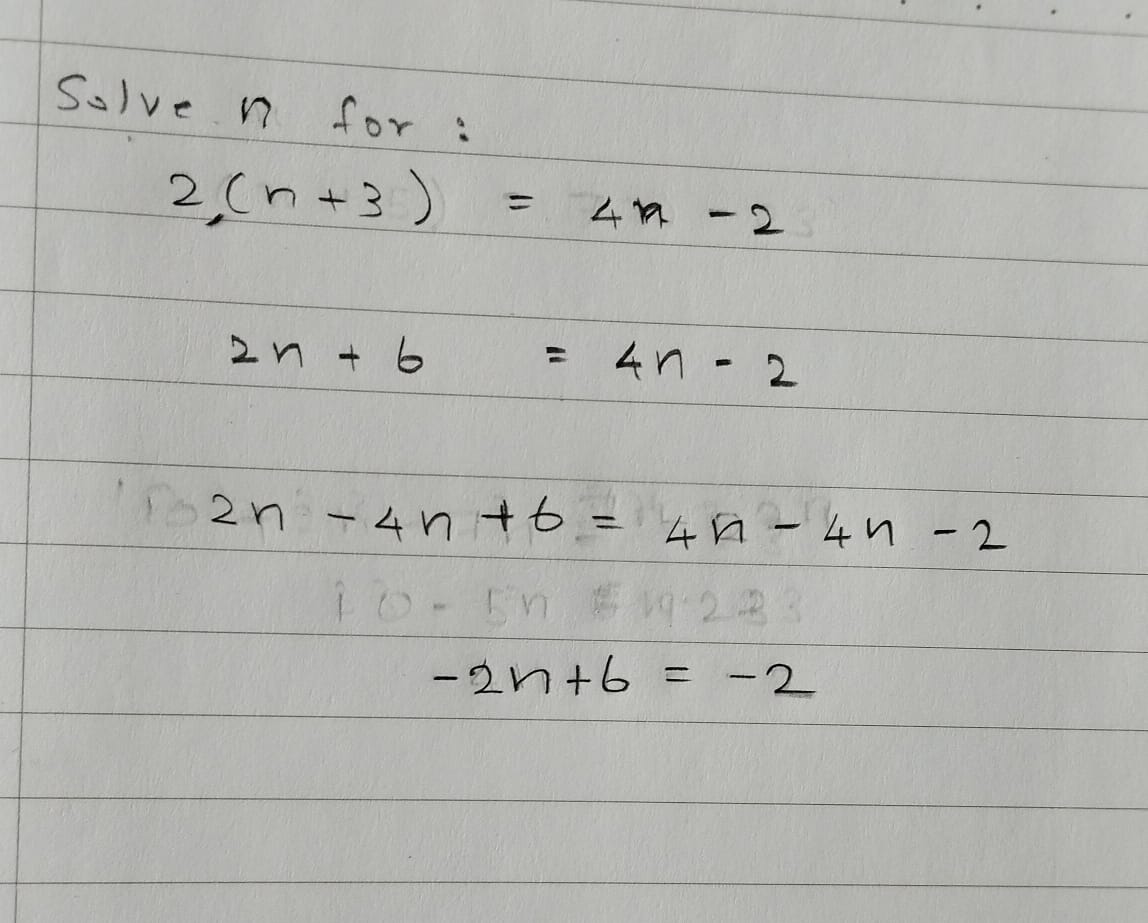 Solve n for :
2(n+3) = 4n - 2
2n + 6 = 4n - 2
2n - 4n + 6 = 4n - 4n - 2
-2n+6 = -2